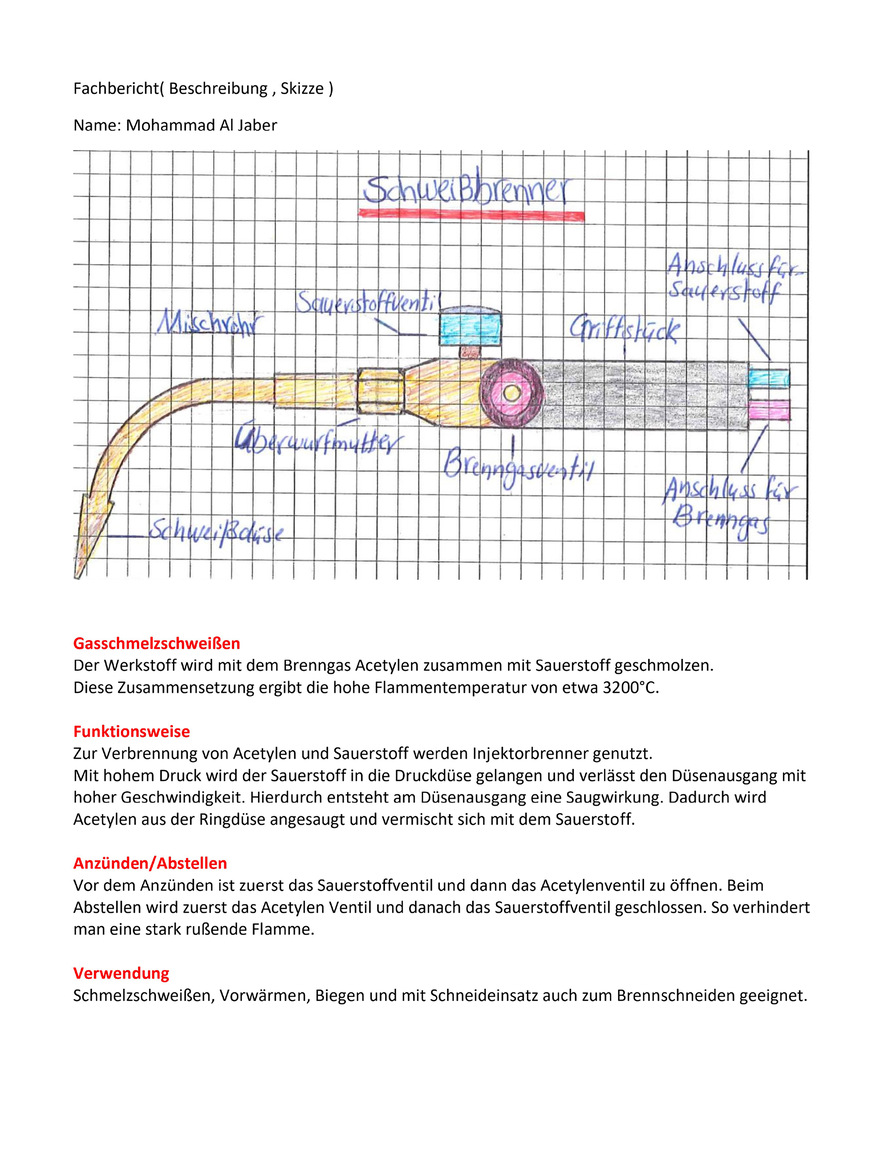 Fachbericht( Beschreibung , Skizze )
Name: Mohammad Al Jaber
Schweißbrenner
Anschluss für
Sauerstoff
Sauerstoffventil
Mischrohr
Griffstück
Überwurfmutter
Brenngasventil
Anschluss für
Brenngas
Schweißdüse
Gasschmelzschweißen
Der Werkstoff wird mit dem Brenngas Acetylen zusammen mit Sauerstoff geschmolzen.
Diese Zusammensetzung ergibt die hohe Flammentemperatur von etwa 3200°C.
Funktionsweise
Zur Verbrennung von Acetylen und Sauerstoff werden Injektorbrenner genutzt.
Mit hohem Druck wird der Sauerstoff in die Druckdüse gelangen und verlässt den Düsenausgang mit
hoher Geschwindigkeit. Hierdurch entsteht am Düsenausgang eine Saugwirkung. Dadurch wird
Acetylen aus der Ringdüse angesaugt und vermischt sich mit dem Sauerstoff.
Anzünden/Abstellen
Vor dem Anzünden ist zuerst das Sauerstoffventil und dann das Acetylenventil zu öffnen. Beim
Abstellen wird zuerst das Acetylen Ventil und danach das Sauerstoffventil geschlossen. So verhindert
man eine stark rußende Flamme.
Verwendung
Schmelzschweißen, Vorwärmen, Biegen und mit Schneideinsatz auch zum Brennschneiden geeignet.